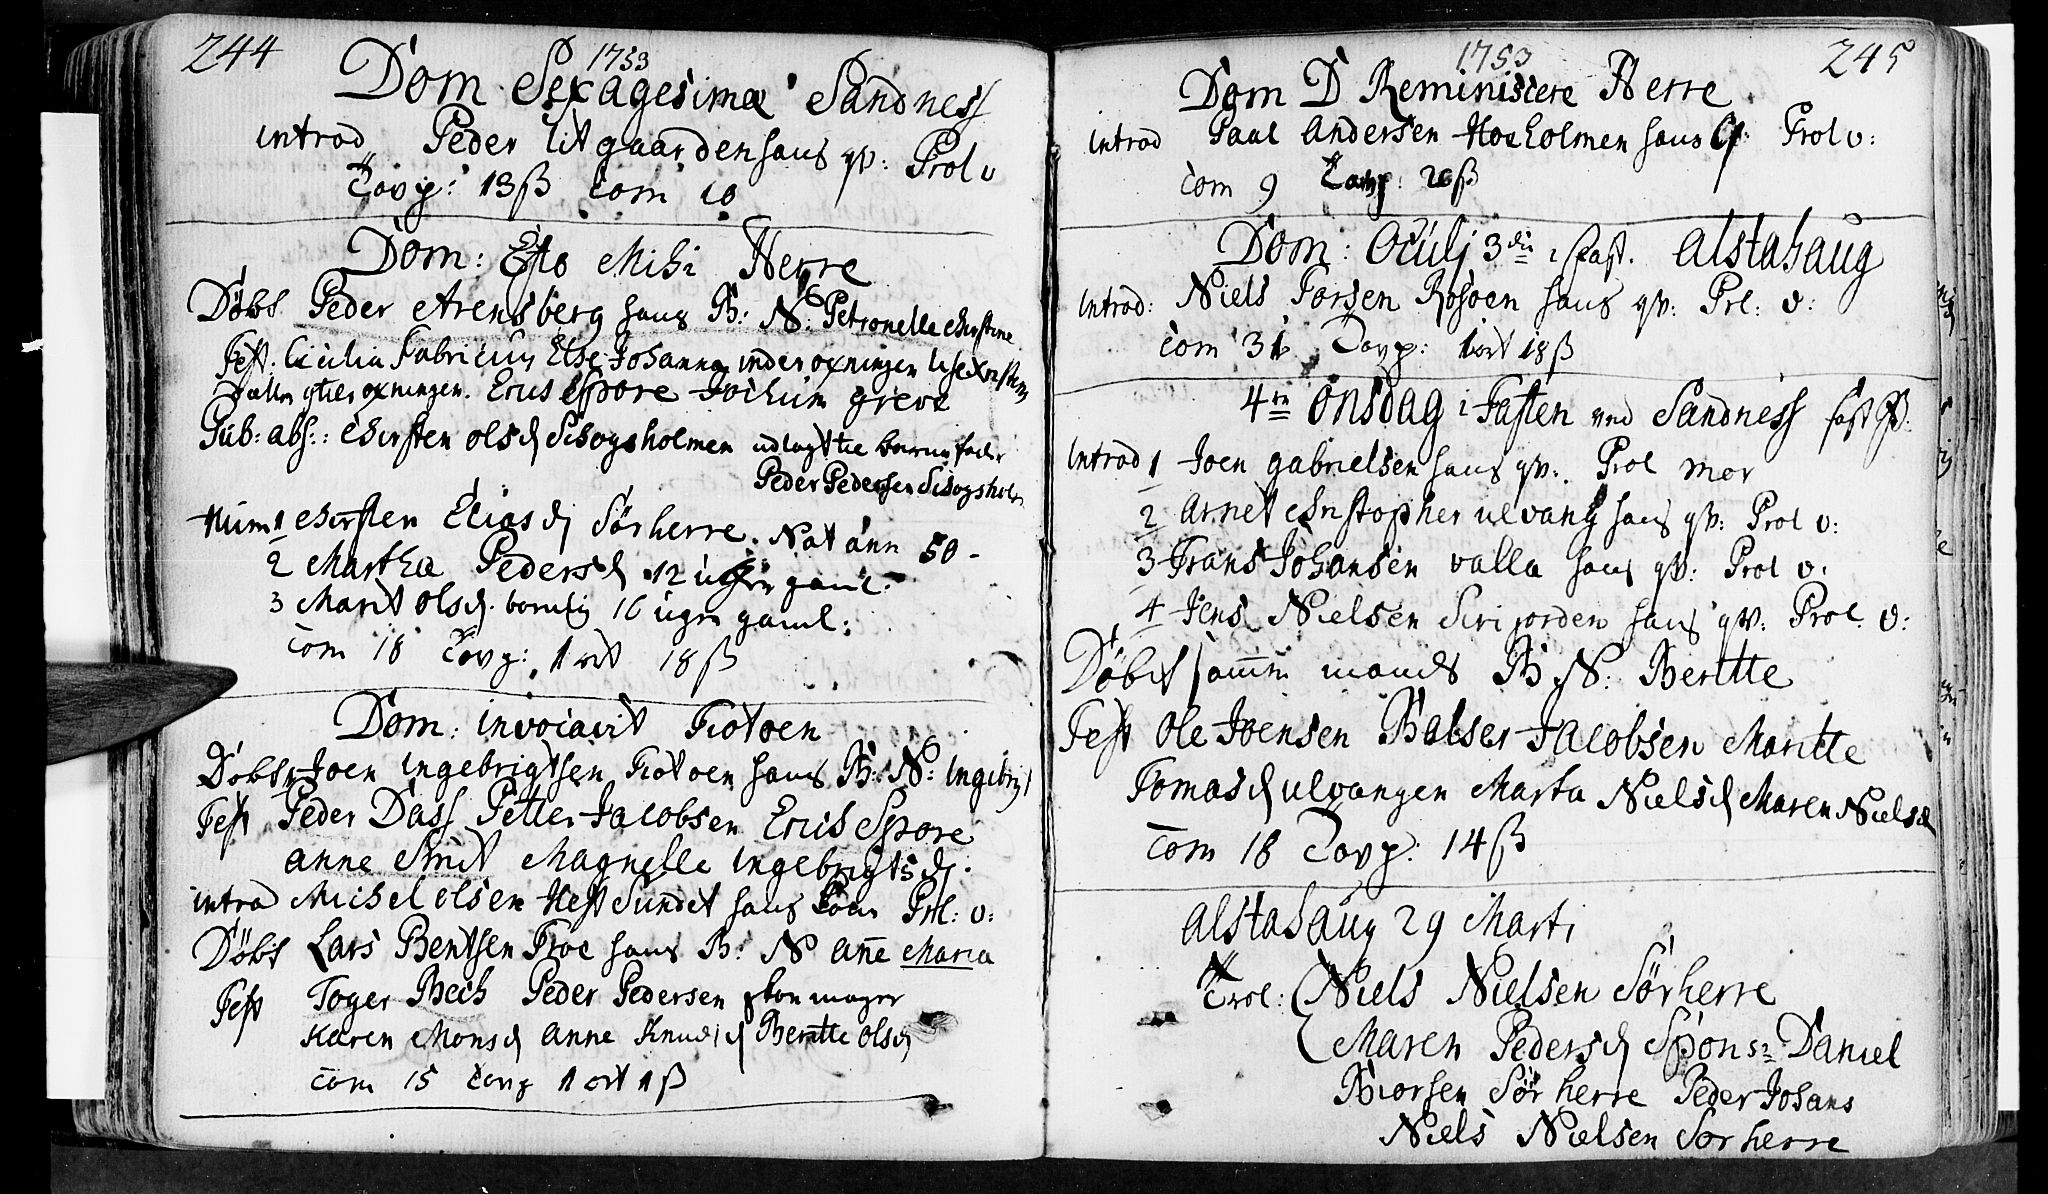 244
1753
Dom Sexagesimæ Sandness
introd Peder litgaarden hans qv: Prol v
Tavp: 13 ß Com 10
Dom: Esto Mihi Herre
Døbt Peder Arensberg hans B: N: Petronelle Chirstine
Test. Cicilia Fabricius Else Johanna inder oxningen
oxningen. Erich Spore Jochim greve
Pub: abs:: Chirsten olsd Schogsholmen udlagt til barne fader
Peder Pedersen Schogsholm
Hum 1 Chirsten Eliasd Sørherre. Nat ann 50 -
2 Martha Pedersd 12 uger gaml.
3 Marit olsd. 16 uger gaml:
Com 18 Tavp: 1 ort 18 ß
Dom: invocavit Tiotoen
Døbt Joen ingebrigtsen Tiotoen hans B: N: ingebrigt
Test Peder Dass Petter Jacobsen Erich Spore
anne Smit Magnelle ingebrigtsd.
introd Michel olsen Hestsundet hans Prl: v:
Døbt Lars Bentsen Troe hans B: N anne Maria
Test Toger Bech Peder Pedersen
Karen Monsd anne Knudsd Beritte olsd
Com 15 Tavp 1 ort 1 ß
245
1753
Dom D Reminiscere Herre
introd Paul Andersen Hoeholmen hans q: Prol v:
Com 9 Tavp: 20 ß
Dom: Oculi 3die i fast. Alstahaug
introd: Niels Torsen Rosøen hans qv: Prl: v:
Com 31 Tavp: 1 ort 18 ß
4de onsdag i Fasten ved Sandness
introd 1 Joen gabrielsen hans qv: Prol mor
2 Arnet Christopher ulvang hans qv: Prol v:
3 Frans Johansen valla hans qv: Prol v:
4 Jens Nielsen hans qv: Prol. v:
Døbt samme mands B N: Beritte
Test Ole Joensen Balser Jacobsen Maritte
Tomasd ulvangen Marta Nielsd Maren Nielsd
Com 18 Tavp: 14 ß
Alstahaug 29 Marti
Trol: Niels Nielsen Sørherre
Maren Pedersd Spons: Daniel
Biorsen Sør herre Peder Johans
Niels Nielsen Sørherre